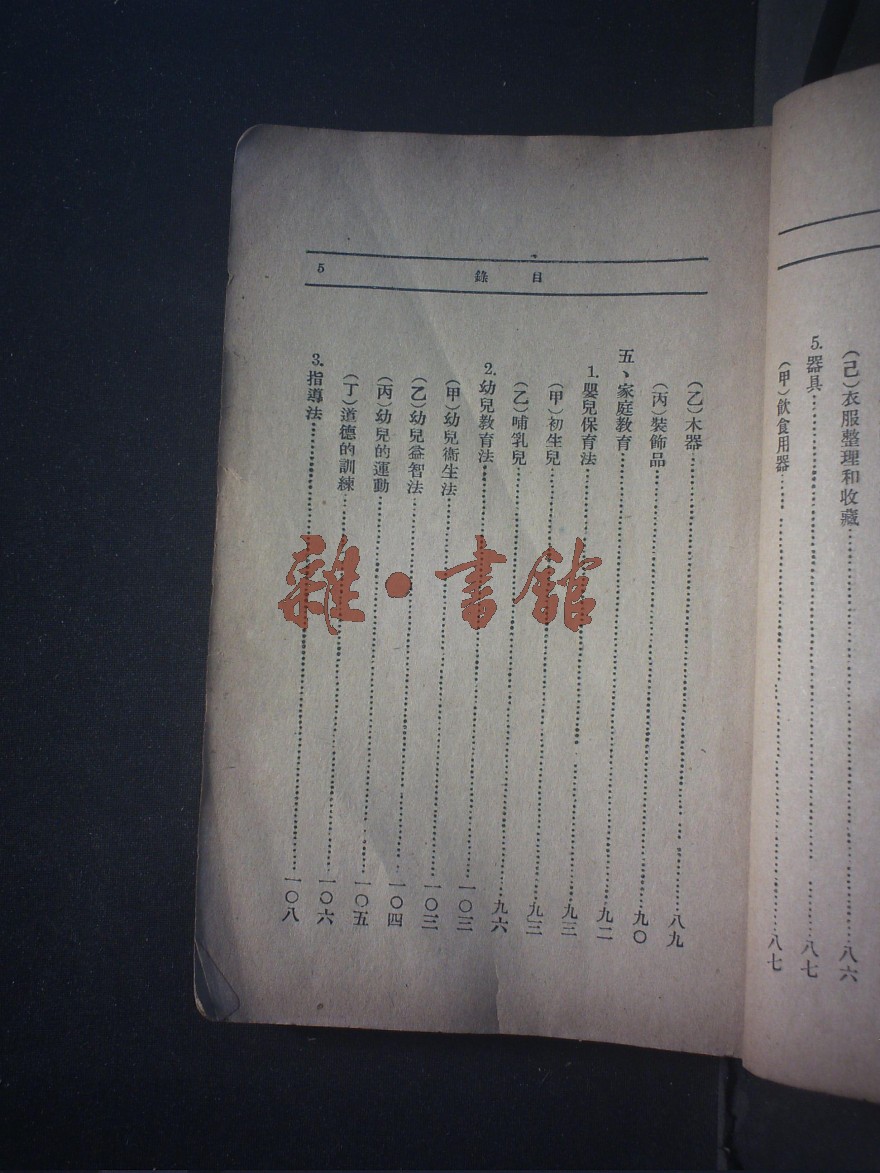 (己)衣服整理和收藏……八六
5.器具……八七
(甲)飲食用器……八七
目錄 5
(乙)木器……八九
(丙)裝飾品……九〇
五、家庭教育……九二
1.嬰兒保育法……九三
(甲)初生兒……九三
(乙)哺乳兒……九六
2.幼兒教育法……一〇三
(甲)幼兒衞生法……一〇三
(乙)幼兒益智法……一〇四
(丙)幼兒的運動……一〇五
(丁)道德的訓練……一〇六
3.指導法……一〇八
雜·書館